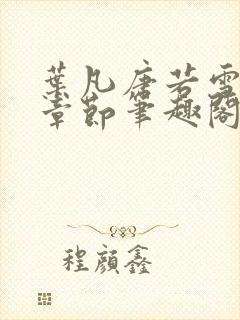 葉凡唐若雪
章節筆趣閣
程顏鑫